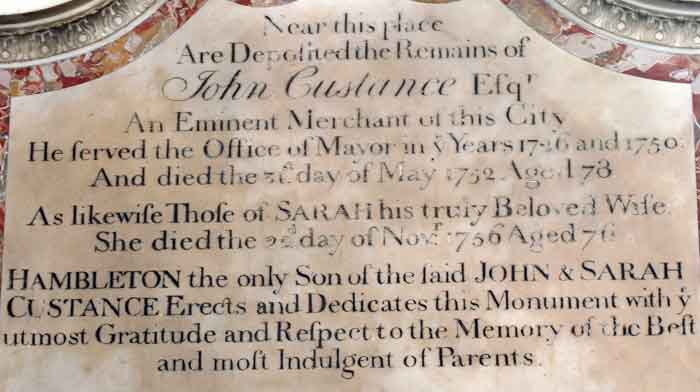 Near this place
Are Depoſited the Remains of
John Custance Eſqʳ
An Eminent Merchant of this City
He ſerved the Office of Mayor in yͤ Years 1726 and 1750.
And died the day of May 1752 Aged 78
As likewiſe Thoſe of SARAH his truly Beloved Wife.
She died the 2ᵈ day of Novʳ 1756 Aged 76
HAMBLETON the only Son of the ſaid JOHN & SARAH
CUSTANCE Erects and Dedicates this Monument with yͤ
utmost Gratitude and Reſpect to the Memory of the Beſt
and moſt Indulgent of Parents.